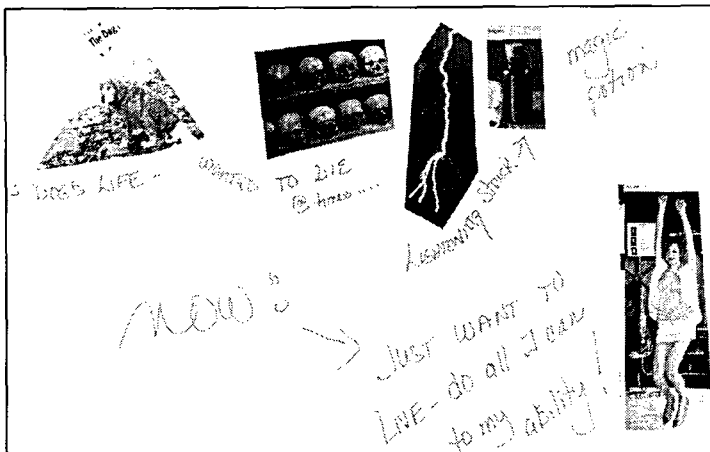 The Dog
DOGS LIFE -
WANTED TO DIE
@ times ....
LIGHTENING Struck
magic
potion
NOW:
JUST WANT TO
LIVE - do all I can
to my ability!